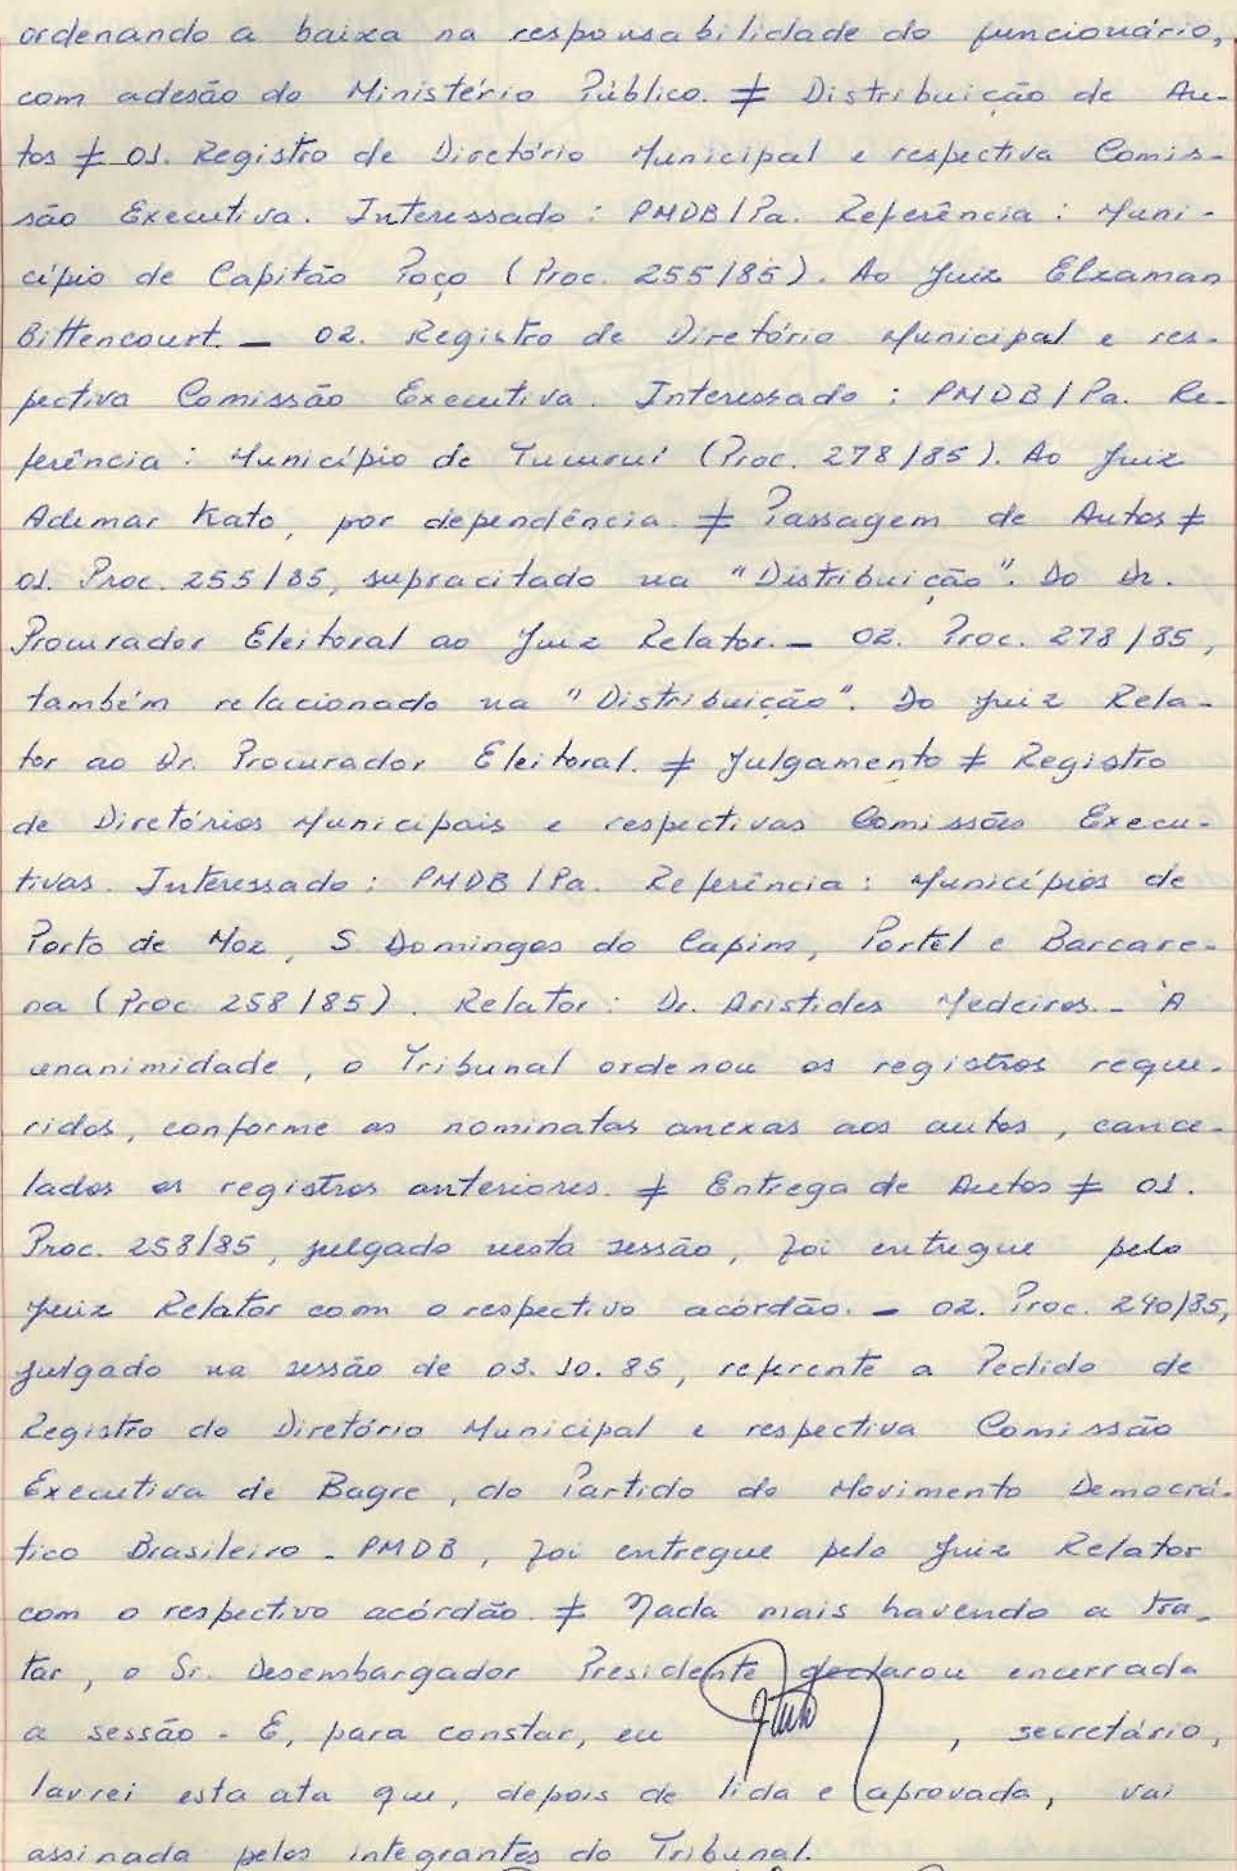 ordenando a baixa na responsabilidade do funcionário,
com adesão do Ministério Público. ≠ Distribuição de Au-
tos ≠ 01. Registro de Diretório Municipal e respectiva Comis-
são Executiva. Interessado: PMDB/Pa. Referência: Muni-
cípio de Capitão Poço (Proc. 255/85). Ao Juiz Elzaman
Bittencourt. — 02. Registro de Diretório Municipal e res-
pectiva Comissão Executiva. Interessado: PMDB/Pa. Re-
ferência: Município de Tucuruí (Proc. 278/85). Ao Juiz
Ademar Kato, por dependência. ≠ Passagem de Autos ≠
01. Proc. 255/85, supracitado na "Distribuição". Do Dr.
Procurador Eleitoral ao Juiz Relator. — 02. Proc. 278/85,
também relacionado na "Distribuição". Do Juiz Rela-
tor ao Dr. Procurador Eleitoral. ≠ Julgamento ≠ Registro
de Diretórios Municipais e respectivas Comissões Execu-
tivas. Interessado: PMDB/Pa. Referência: Municípios de
Porto de Moz, S Domingos do Capim, Portel e Barcare-
na (Proc 258/85). Relator: Dr. Aristides Medeiros. - À
unanimidade, o Tribunal ordenou os registros reque-
ridos, conforme as nominatas anexas aos autos, cance-
lados os registros anteriores. ≠ Entrega de Autos ≠ 01.
Proc. 258/85, julgado nesta sessão, foi entregue pelo
Juiz Relator com o respectivo acórdão. — 02. Proc. 240/85,
julgado na sessão de 03.10.85, referente a Pedido de
Registro do Diretório Municipal e respectiva Comissão
Executiva de Bagre, do Partido do Movimento Democrá-
tico Brasileiro - PMDB, foi entregue pelo Juiz Relator
com o respectivo acórdão. ≠ Nada mais havendo a tra-
tar, o Sr. Desembargador Presidente declarou encerrada
a sessão - E, para constar, eu , secretário,
lavrei esta ata que, depois de lida e aprovada, vai
assinada pelos integrantes do Tribunal.